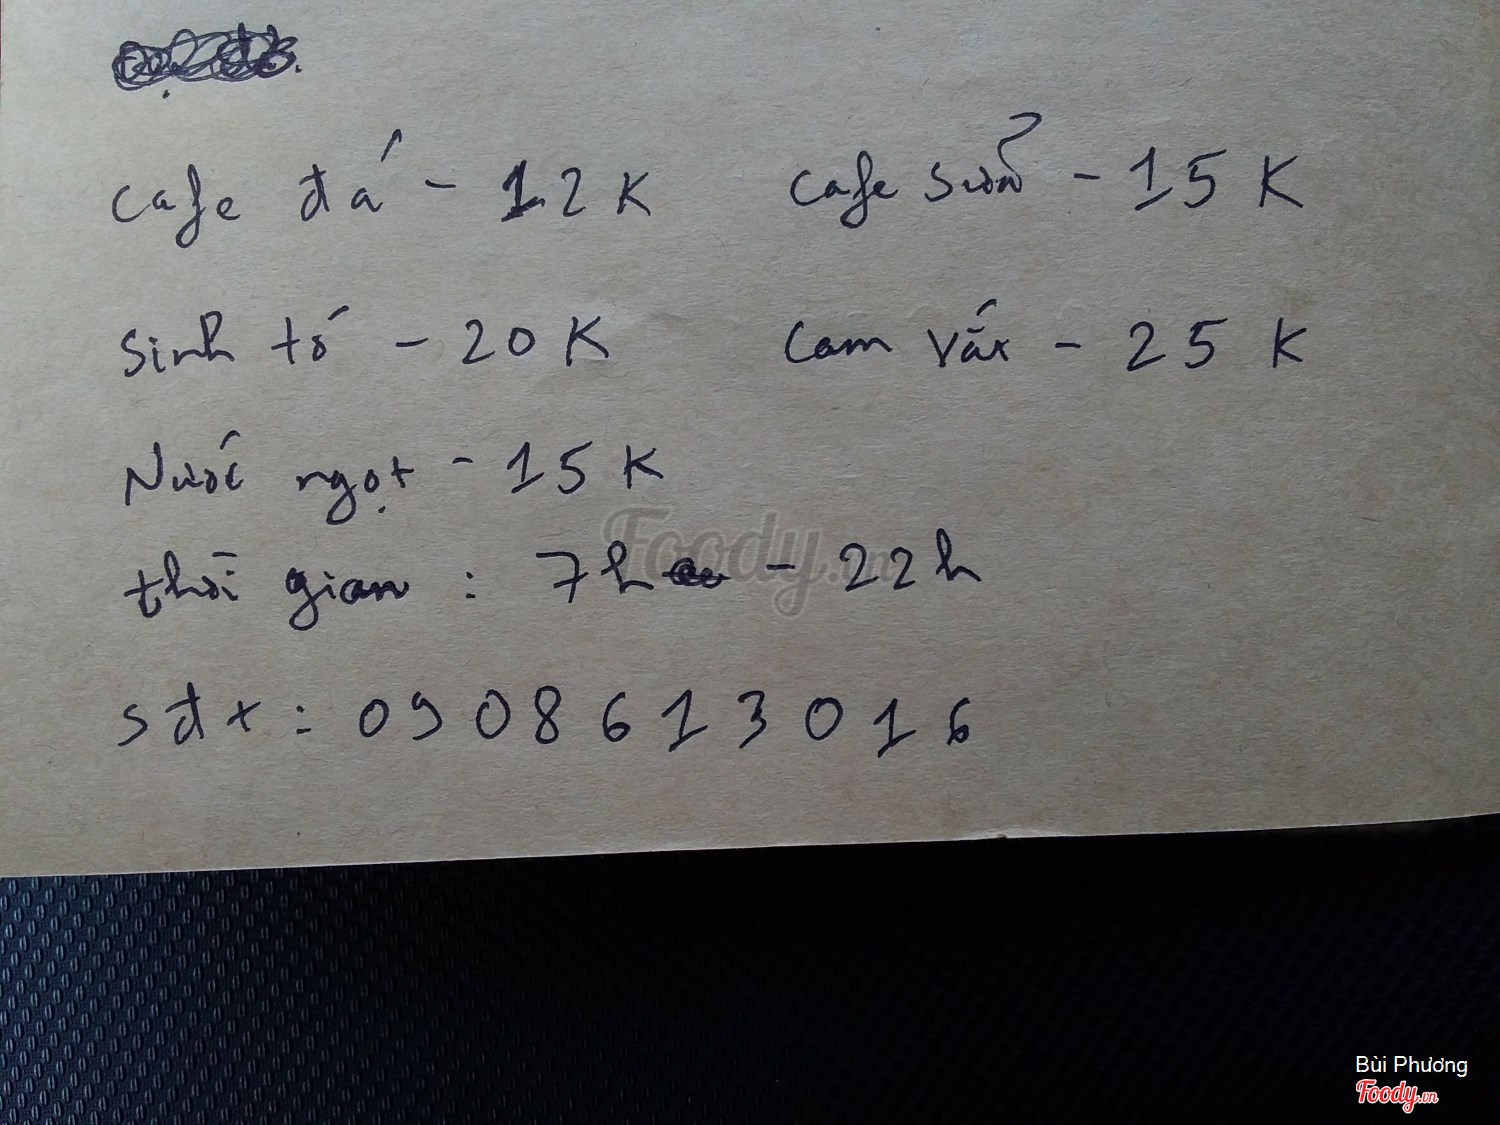 cafe đá - 12K cafe sữa - 15K
sinh tố - 20K cam vắt - 25K
Nước ngọt - 15K
thời gian : 7h - 22h
sđt : 0908613016
Foody.vn
Bùi Phương
Foody.vn